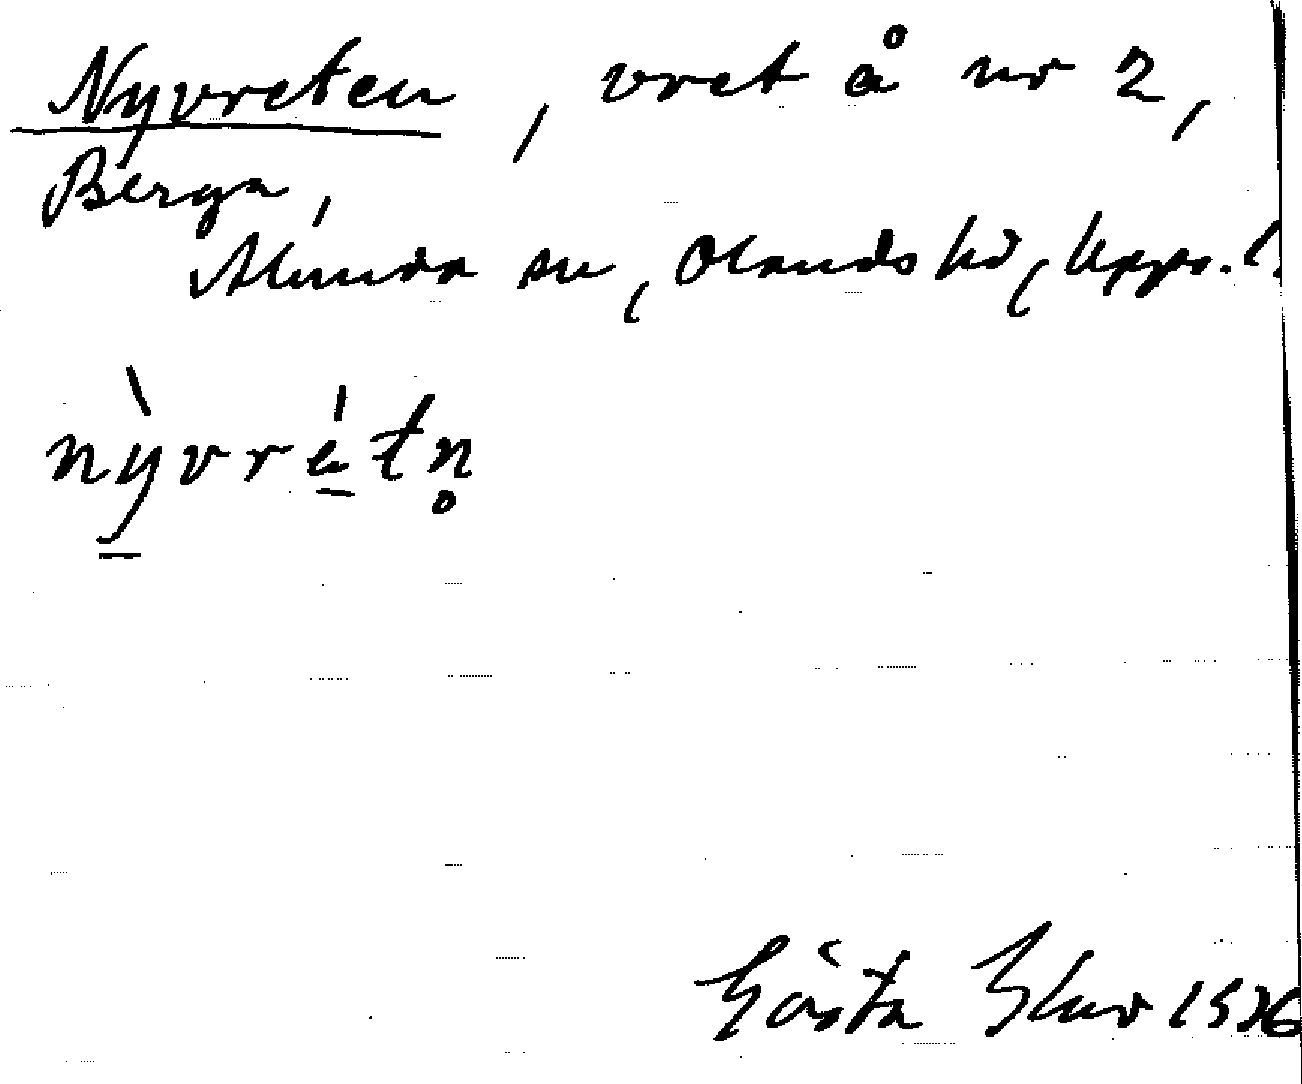 Nyvreten, vret å nr 2,
Berga,
Alunda sn, Olands hd, Upps. l.
nỳvré̱tn̥
Gösta 1936